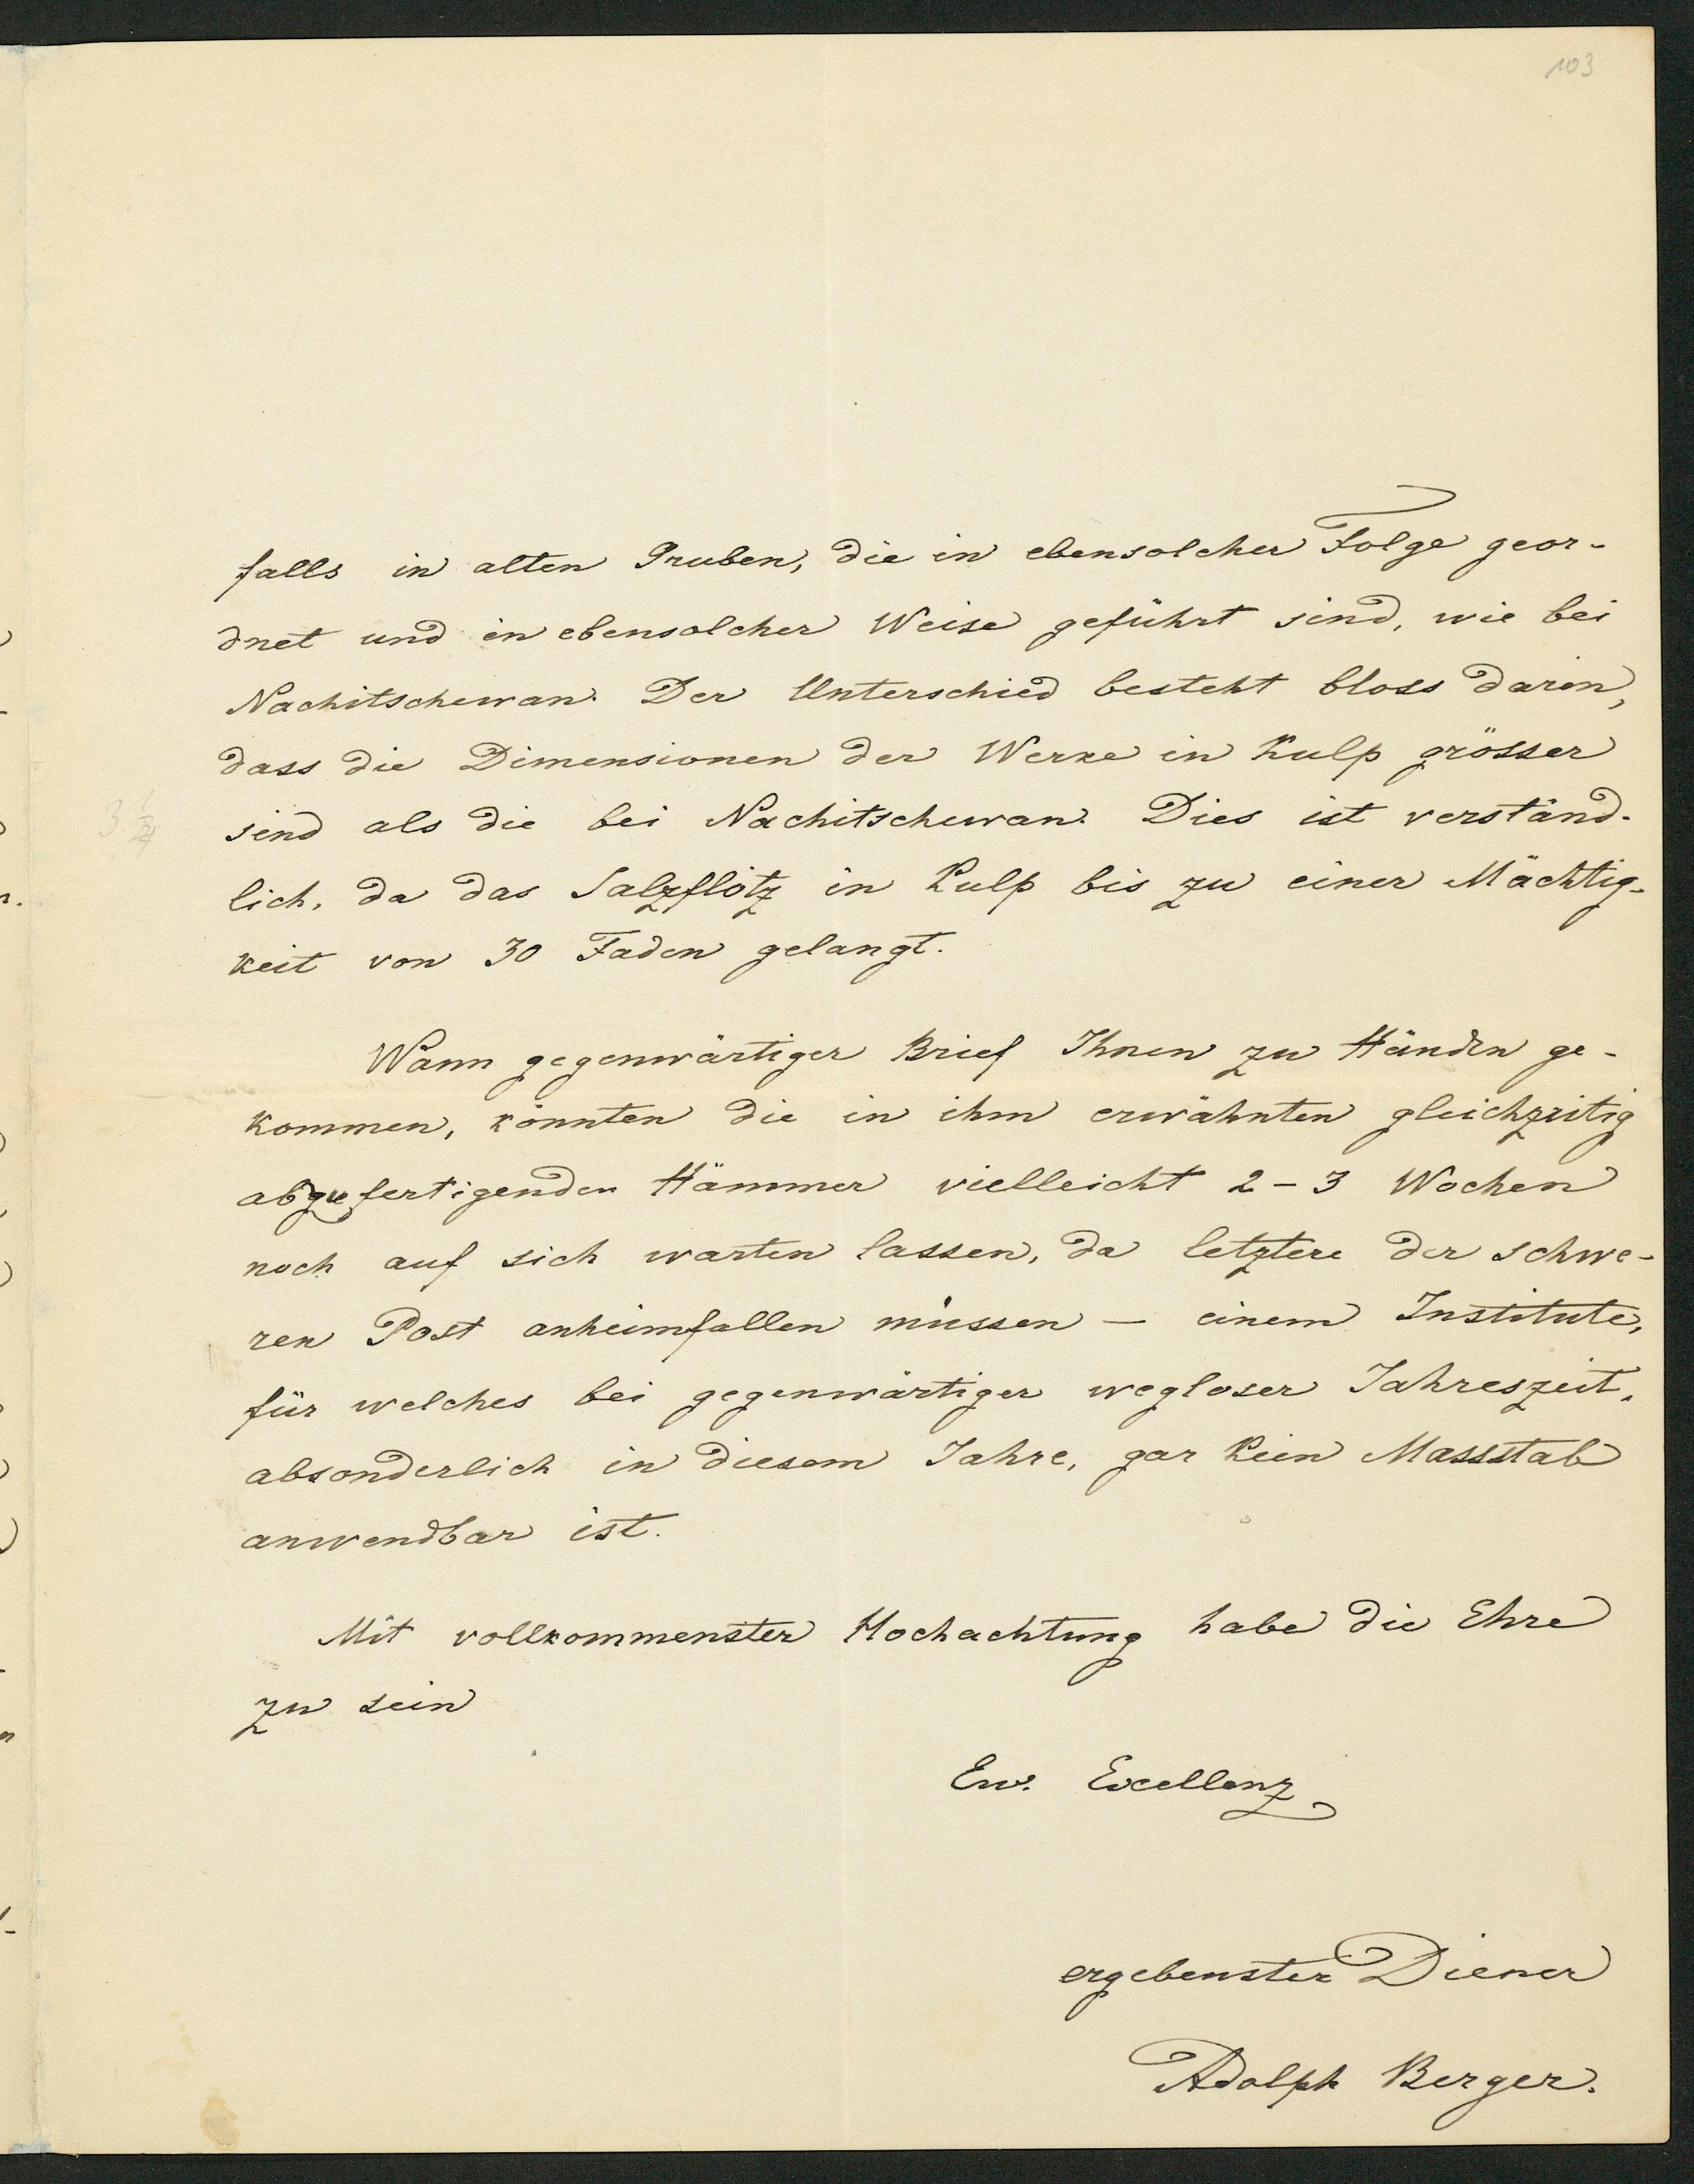 103
falls in alten Gruben, die in ebensolcher Folge geor-
dnet und in ebensolcher Weise geführt sind, wie bei
Nachitschewan. Der Unterschied besteht bloss darin,
dass die Dimensionen der Werke in Kulp grösser
sind als die bei Nachitschewan. Dies ist verständ-
lich, da das Salzflötz in Kulp bis zu einer Mächtig-
keit von 30 Faden gelangt.
Wann gegenwärtiger Brief Ihnen zu Händen ge-
kommen, könnten die in ihm erwähnten gleichzeitig
abzufertigenden Hämmer vielleicht 2-3 Wochen
noch auf sich warten lassen, da letztere der schwe-
ren Post anheimfallen müssen — einem Institute,
für welches bei gegenwärtiger wegloser Jahreszeit,
absonderlich in diesem Jahre, gar kein Massstab
anwendbar ist.
Mit vollkommenster Hochachtung habe die Ehre
zu sein
Ew. Excellenz
ergebenster Diener
Adolph Berger.